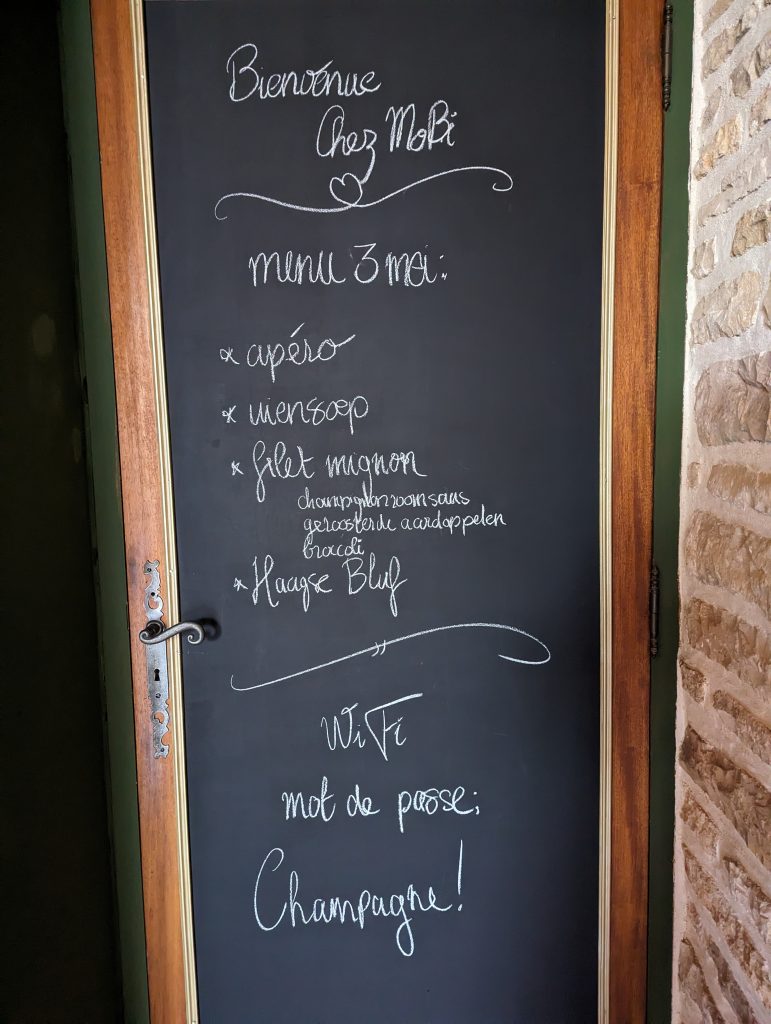 Bienvénue
Chez MoBi
menu 3 mei:
* apéro
* uiensoep
* filet mignon
champignonroomsaus
geroosterde aardappelen
broccoli
* Haagse Bluf
WiFi
mot de passe:
Champagne!